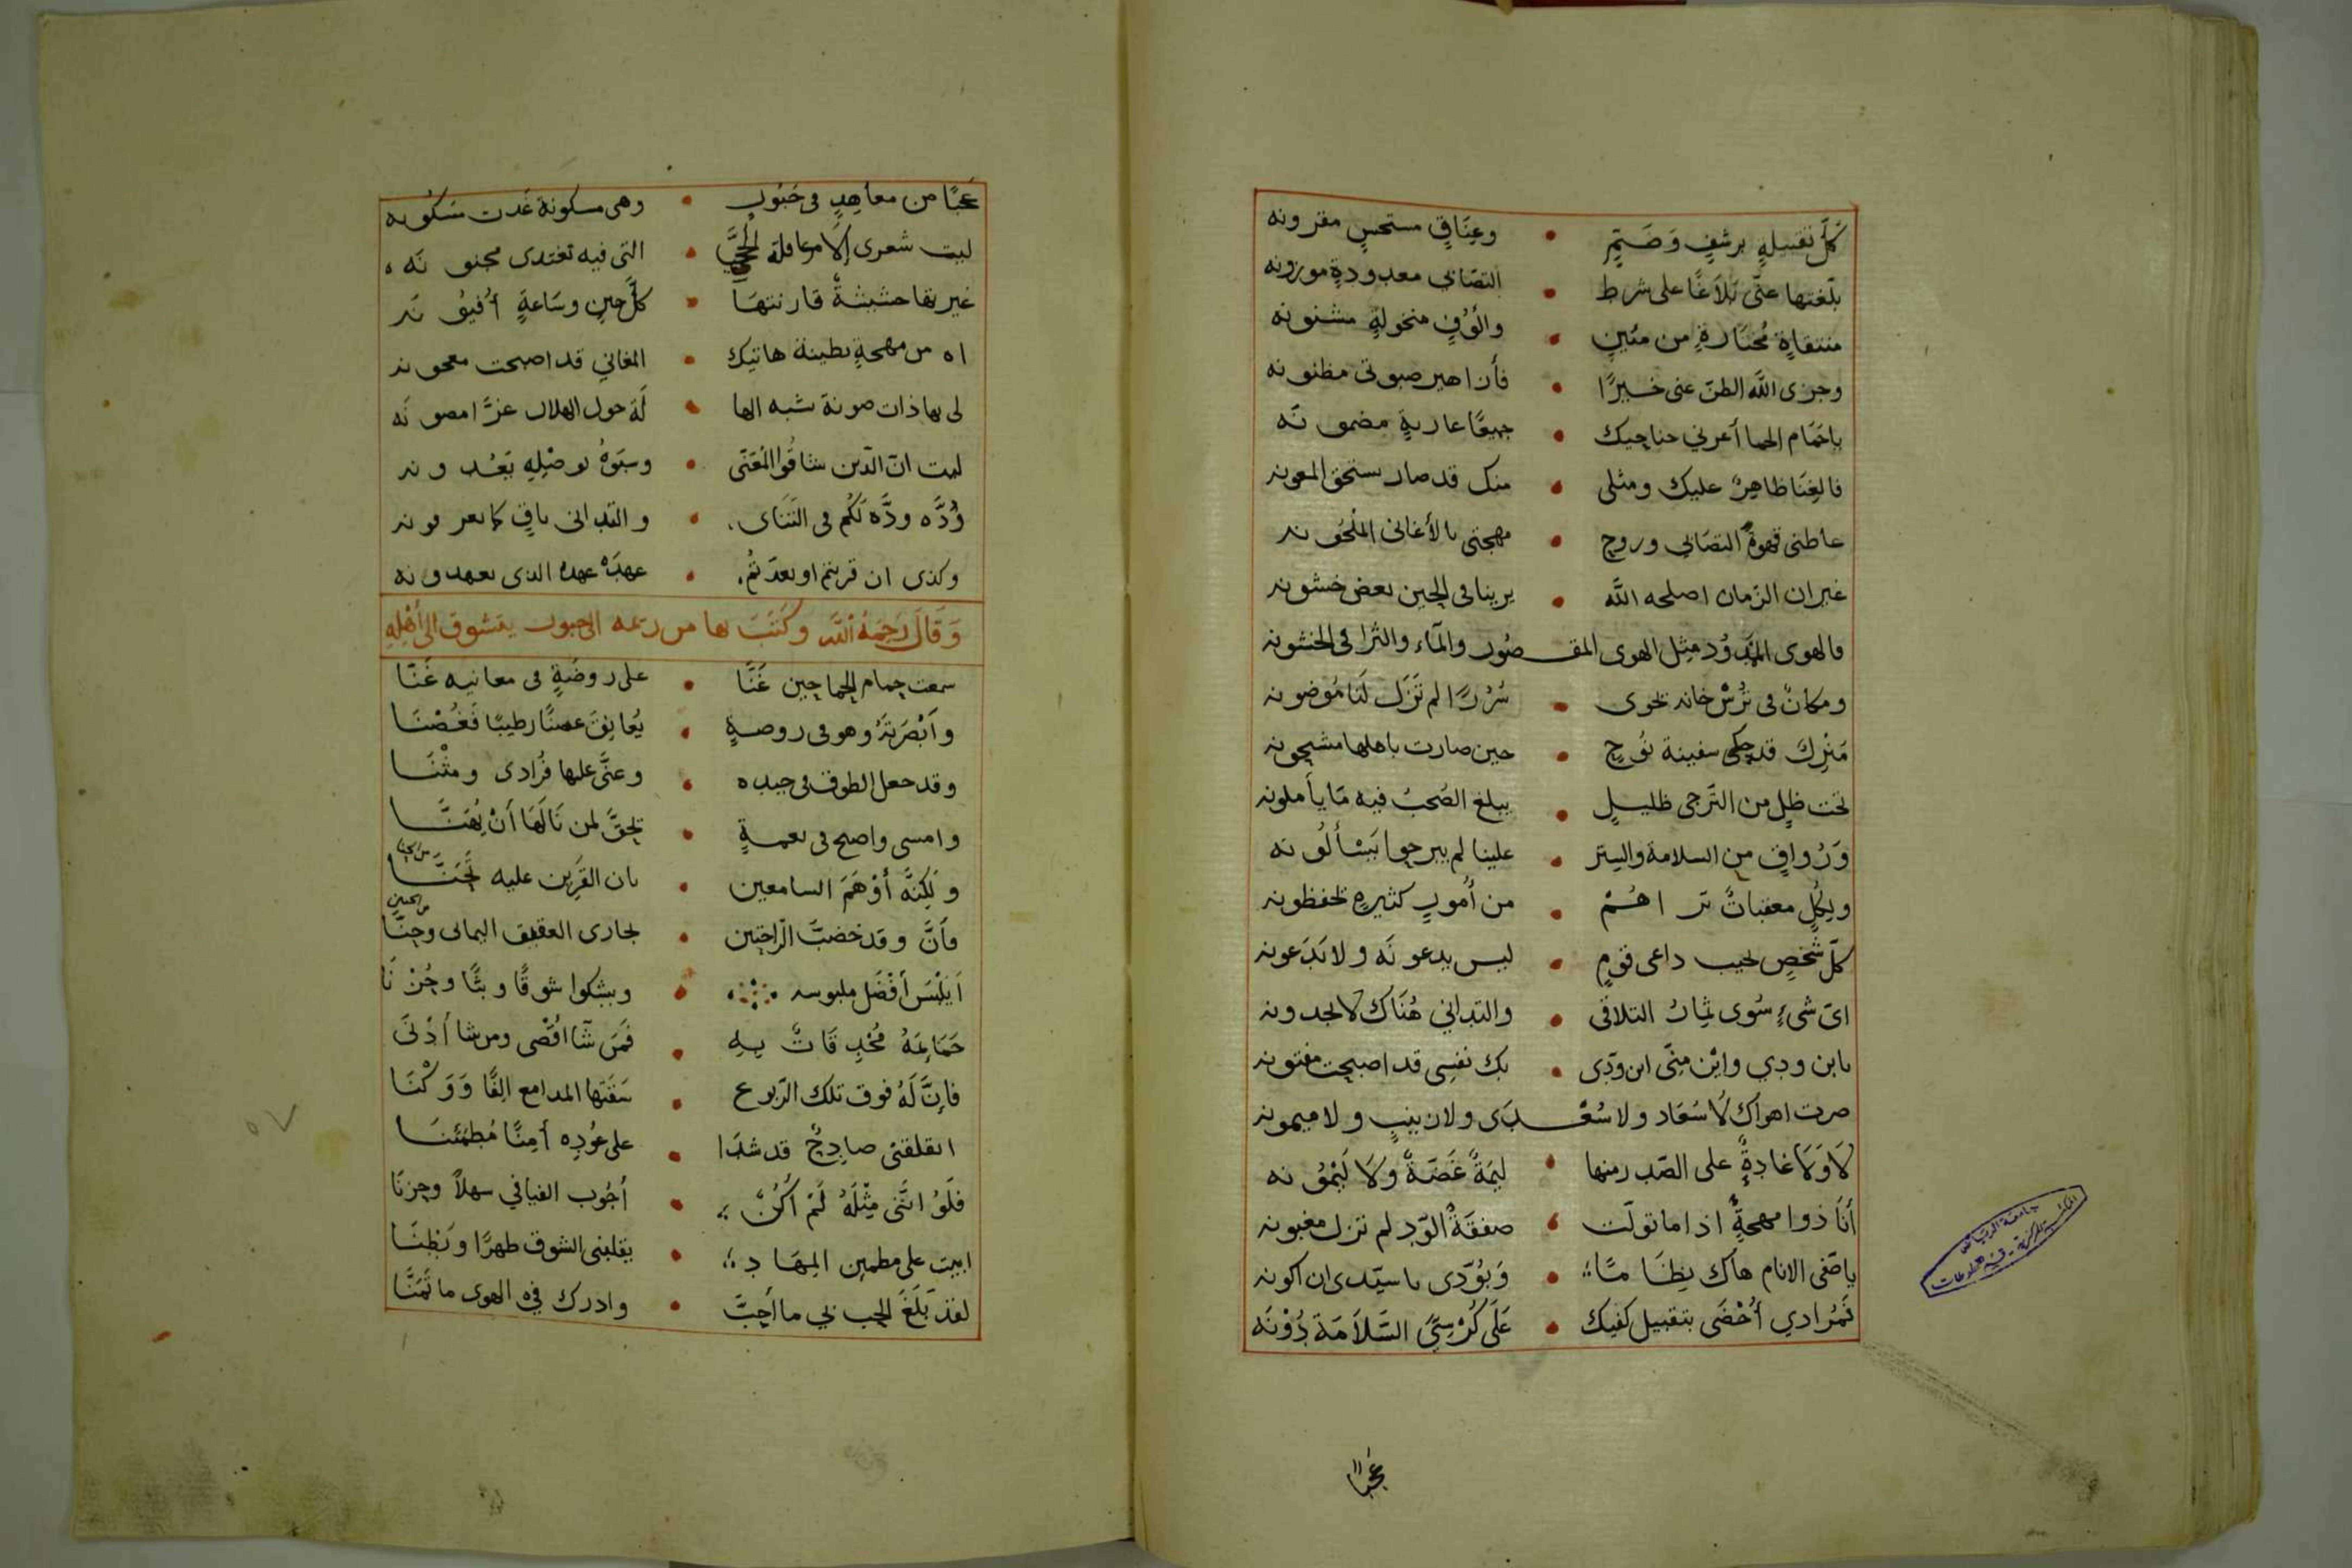 كلّ تقبيلهٍ برشفٍ وَضَمٍّ • وعِنَاقٍ مستحسٍ مقرونه
بلّغتها عنّى بَلاَغًا على شرط • التصَابى معدودةٍ موزونه
منتقاةٍ مُختَارةٍ من مئينٍ • والُوْفٍ منخولةٍ مشنونه
وجزى اللّه الظنّ عنى خيرًا • فأن اهير صبوتى مظنونه
ياحَمَام الحما أعرني جناحيك • جميعًا عاريةٍ مضمونَه
فالغِنَا ظاهِرٌ عليك ومثلى • منك قد صار يستحق المعونه
عاطنى قهوة التصَابي وروح • مهجتى بالأغانى الملحونه
غير ان الزّمان اصلحه اللَّه • يرينا فى الحين بعض خشونه
فالهوى الممدُود مِثل الهوى المقصُور والمآء والثرا فى الخشونه
ومكانٌ فى تُرسْ خانه تحوى • سُرُرًا لم تَزَل لَنا مَوضونه
مَنْزِل قد حكى سفينة نُوحٍ • حين صارت باهلها مشحونه
تحت ظلٍ من التَرجى ظليلٍ • يبلغ الصُحبُ فيه مَا يأملونه
وَرُواقٍ من السلامة والسِتر • علينا لم يبرحوا يَسْألُونه
ولِكُلٍ معقباتٌ تراهُمْ • من أُمورٍ كثيرةٍ تحفظونه
كلّ شخصٍ يجيب داعى قومٍ • ليس يدعونَه ولا يَدَعونه
اىّ شىءٍ سُوى ثِمَارُ التلاقى • والتدانى هُنَاك لا يجدونه
يابن ودي وايْن مِنّى ابن ودّى • بك نفسِى قد اصبحت مفتونه
صرت اهواك لاُ سُعَاد ولا سُعْدَى ولا زينبٍ ولا ميمونه
لاَ وَلاَ غادةٌ على الصّد رمنها • لِيمَةً غَضّةً ولاَ لَيْمُونه
أنَا ذوا مهجةٍ اذا ما تولّت • صفقةُ الوّد لم تزل مغبونه
يا صّفى الانام هاك نِظَامًا • وَبُوّدى يا سيّدى ان اكونه
فَمُرادي أُحْضَى بتقبيل كفيك • عَلَى كُرْسِيِّ السَّلاَمَة دُوْنَه
عَجَبًا
عَجَبًا من معاهدٍ فى حَبُور • وهى مسكونة غدت مسكونه
ليت شعرى إلاَمرَ عاقلة الحَيِّ • التى فيه تغتدى مجنونَه
غير بقا حشيشةٌ قارنتهَا • كلَّ حينٍ وسَاعةٍ أُفيونَه
اه من مهجةٍ بطينة هاتيك • المغاني قد اصبحت معجونه
لى بها ذات صونة شبه الها • لَة حول الهلال عزًّا مصونَه
ليت انّ الذين شاقُوا المُعَنّى • وسبَوهُ بوصْلِهِ يَعْدونه
وُدَّه ودَّه لَكُم فى التَنَاى • والتدانى باقٍ كما تعرفونه
وكذى ان قربتم او بعدّتُم • عهدَه عهده الذى تعهدونه
وَقَالَ رَحِمَهُ اللَّه وكَتَبَ بها من ريمه الى حبور يتشوق الى أَهْلِهِ
سمعت حمام الحما حين غَنَّا • على روضةٍ فى معانيه غَنّا
وأَبْصَرتَهُ وهو فى روضةٍ • يُعانِقَ غصنًا رطيبًا فَغُصْنَا
وقد جعل الطوق فى جيده • وغنَّى عليها فُرَادى ومثْنَا
وامسى واصبح فى نعمةٍ • تحقَّ لمن نَالَهَا أنْ يُهَنَّا
ولَكِنَّه أَوْهَمَ السامعين • بان القَرِين عليه تَجَنَّا
من الجنا
فأَنَّ وقد خضبَّ الرّاحتين • بجارى العقيق اليمانى وحِنّا
من الحنين
أَيَلْبَس أفْضَل ملبوسه • ويشكوا شوقًا وبثًّا وحُزْنَا
حَمَامَةُ مُخْدِقَاتٌ بِهِ • فَمَن شَآ اقْصى ومن شا أدْنَى
فإنَّ لَهُ فوق تلك الرّبوع • سَقَتها المدامع الِفًا وَوَكْنَا
اتقلقنى صادِحٌ قد شدَا • على عُوْدِه أمِنًا مُطمَئنَا
فلَوْ انَّنى مِثْلَهُ لَمْ أَكُنْ • أجُوب الفيافي سهلاً وحزنَا
ابيت على مطمين المِهَادِ • يقلبنى الشوق ظهرًا وبَطِنًا
لقد بَلَغَ الحب بي ما أَحبَّ • وادرك فيْه الهوى ما تَمَنَّا
جامعة الرياض